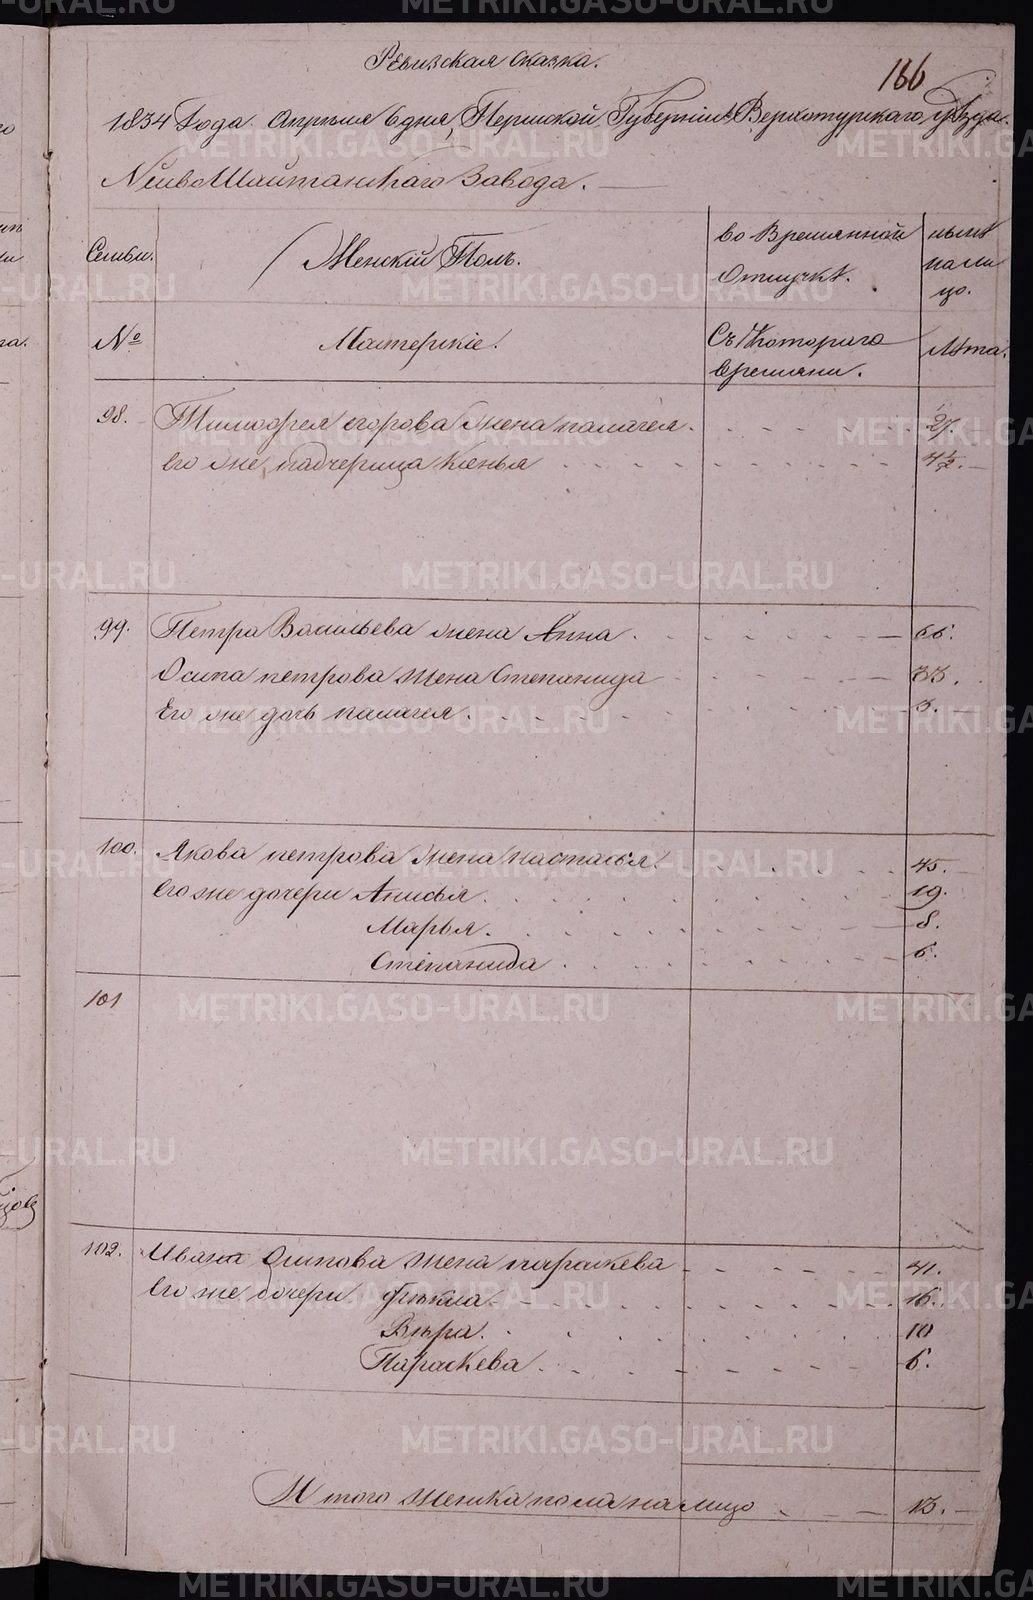 Ревизская сказка.
166
1834 Года Апреля 6 дня, Пермской Губернии Верхотурского уѣзда
НейвоШайтанскаго Завода.
Семьи.
Женскій Полъ.
во Временной
Отлучкѣ.
нынѣ
на ли
цо.
№
Мастерскіе.
Съ котораго
времяни.
Лѣта.
98.
Тимофея егорова жена палагея.
27.
его же падчерица Ксенья
4 1/2.
99.
Петра Васильева жена Анна.
66.
Осипа петрова жена Степанида
33.
Его же дочь палагея.
3.
100.
Якова петрова жена настасья.
45.
Его же дочери Анисья.
19.
Марья.
8.
Степанида.
6.
101
102.
Ивана Осипова жена параскева
41.
Его же дочери. фиокла
16.
Вѣра.
10
Параскева.
6.
Итого женска пола налицо
13.
METRIKI.GASO-URAL.RU